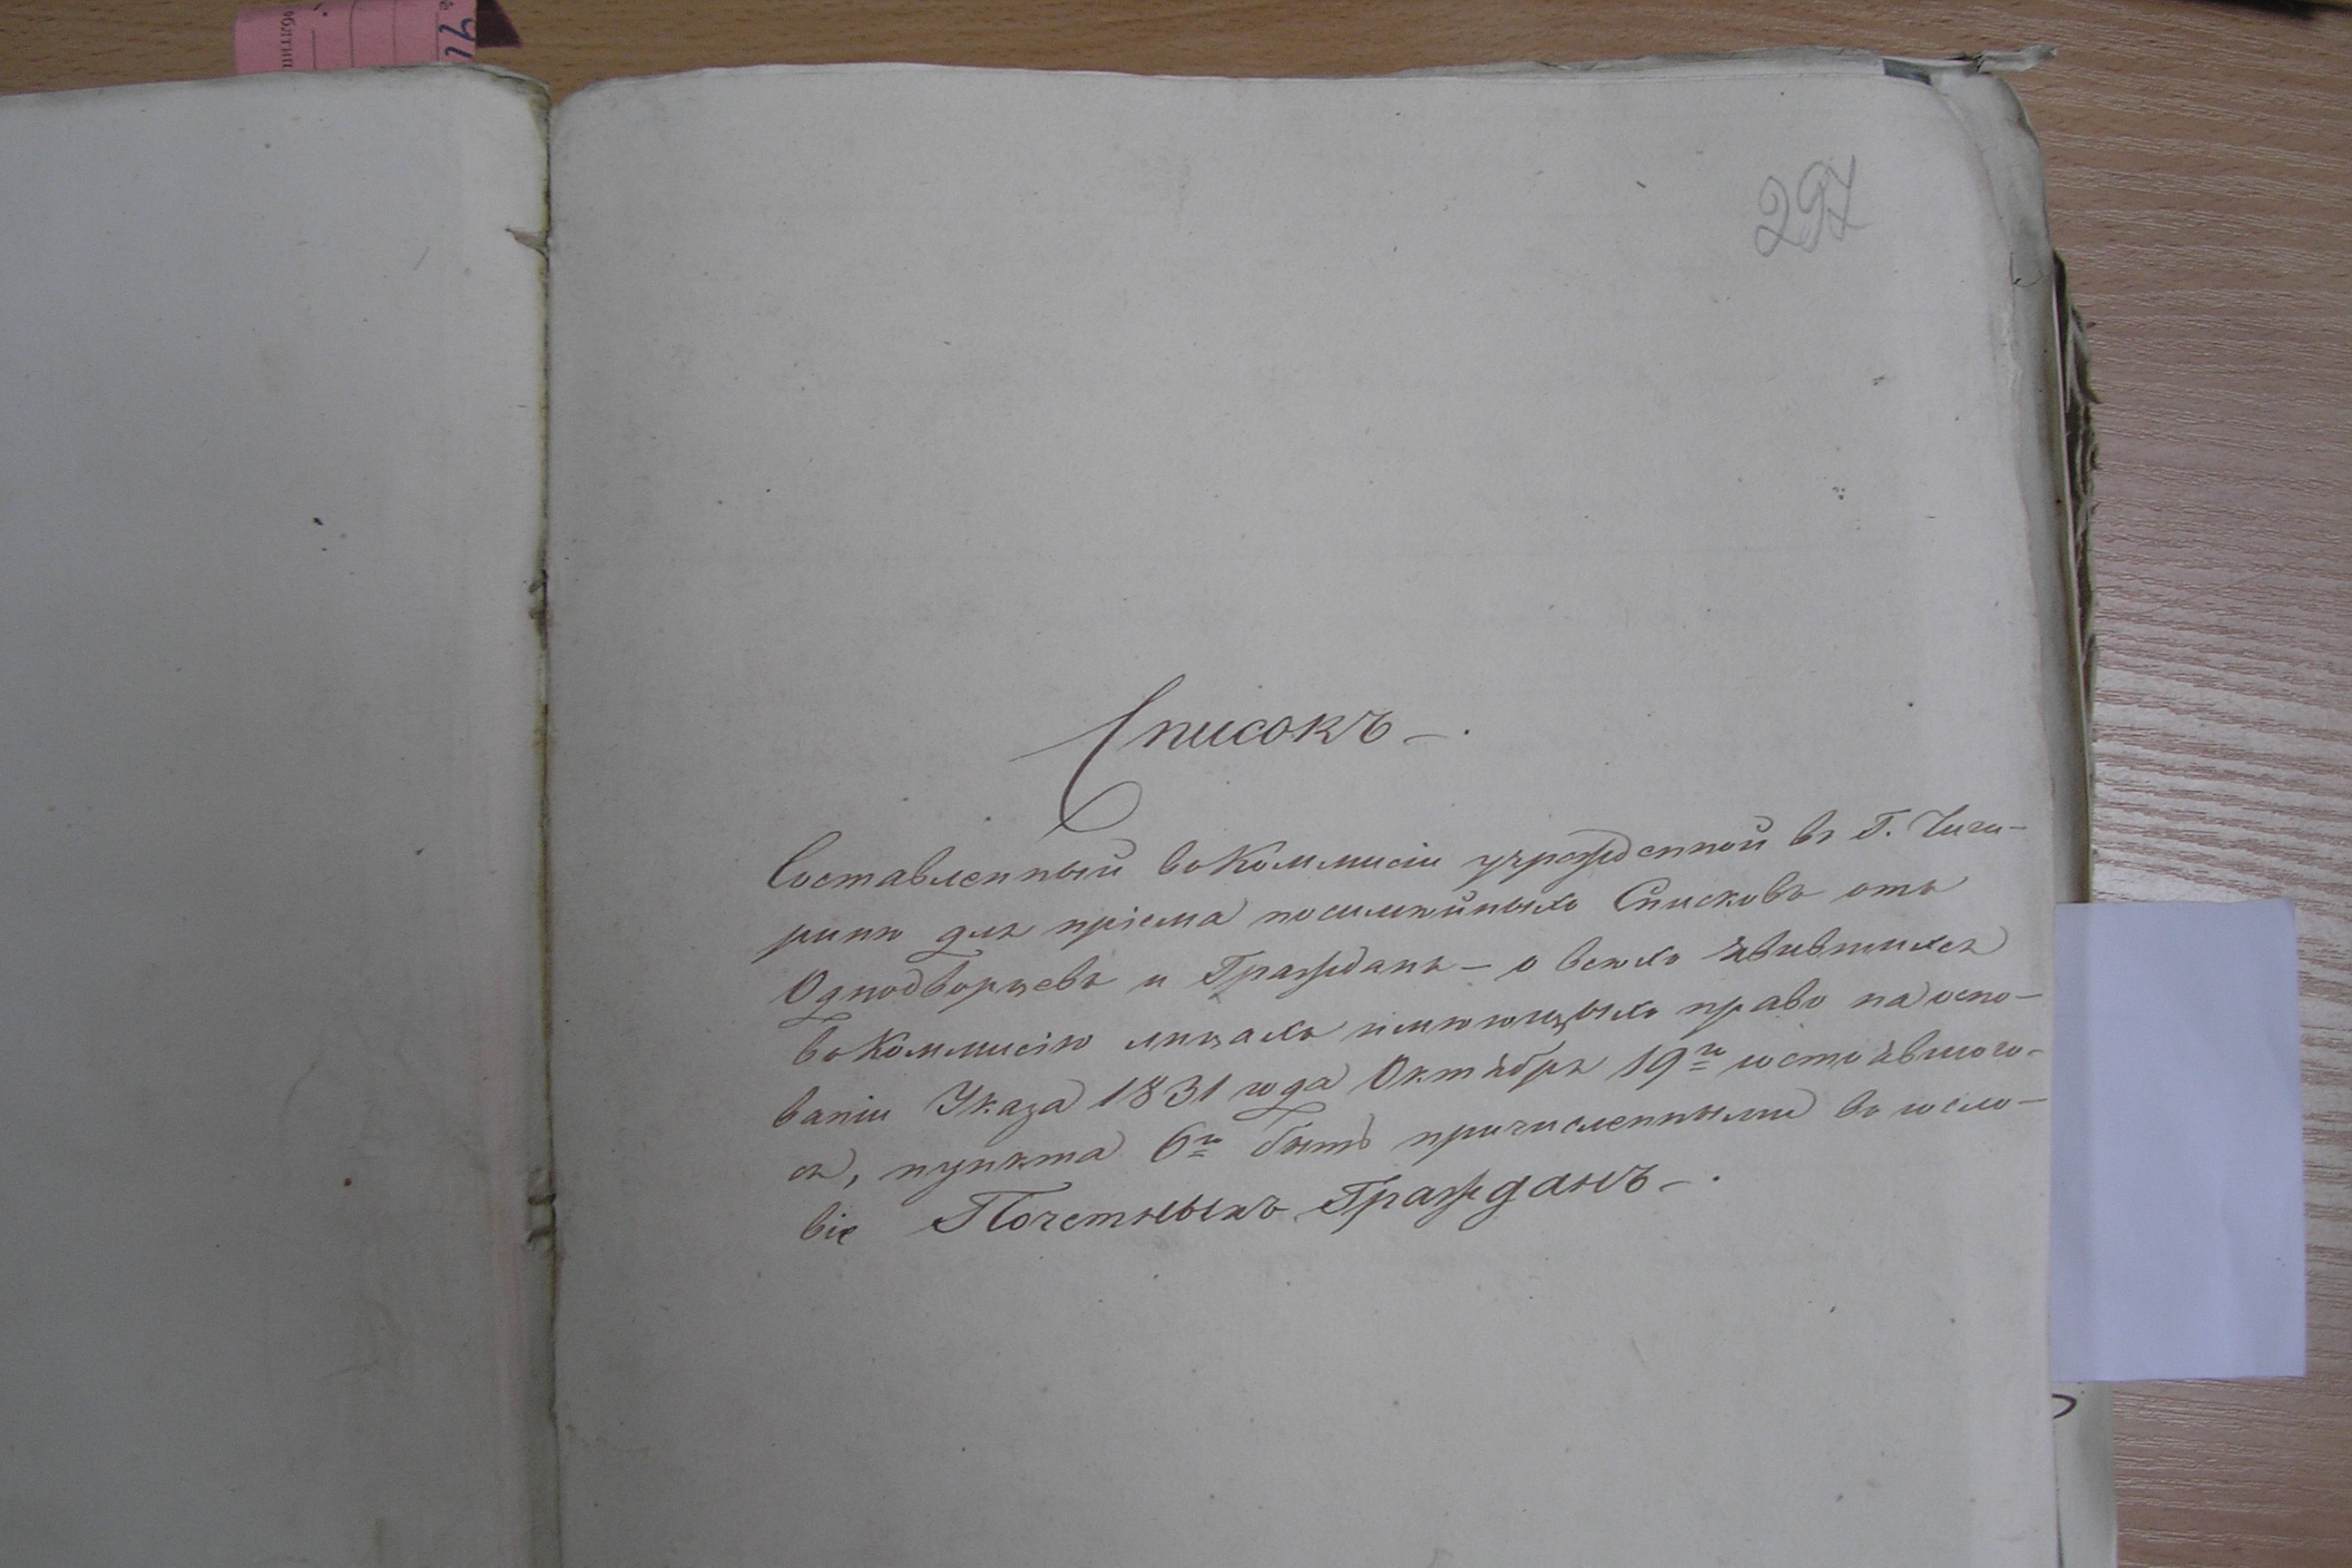 297
Списокъ —.
Составленный въ Коммисіи учрежденной въ Г. Чиги-
ринѣ для пріема посемейныхъ Списковъ отъ
Однодворцевъ и Гражданъ — о всѣхъ явившихся
въ Коммисію лицахъ имѣющихъ право на осно-
ваніи Указа 1831 года Октября 19го состоявшаго-
ся, пункта 6го быть причисленными въ сосло-
віе Почетныхъ Гражданъ —.